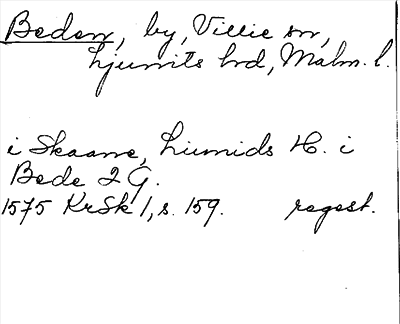 Beden, by, Villie sn,
Ljunits hd, Malm. l.
i Skaane, Liunids H. i
Bede 2 G.
1575 KrSk 1, s. 159. regest.